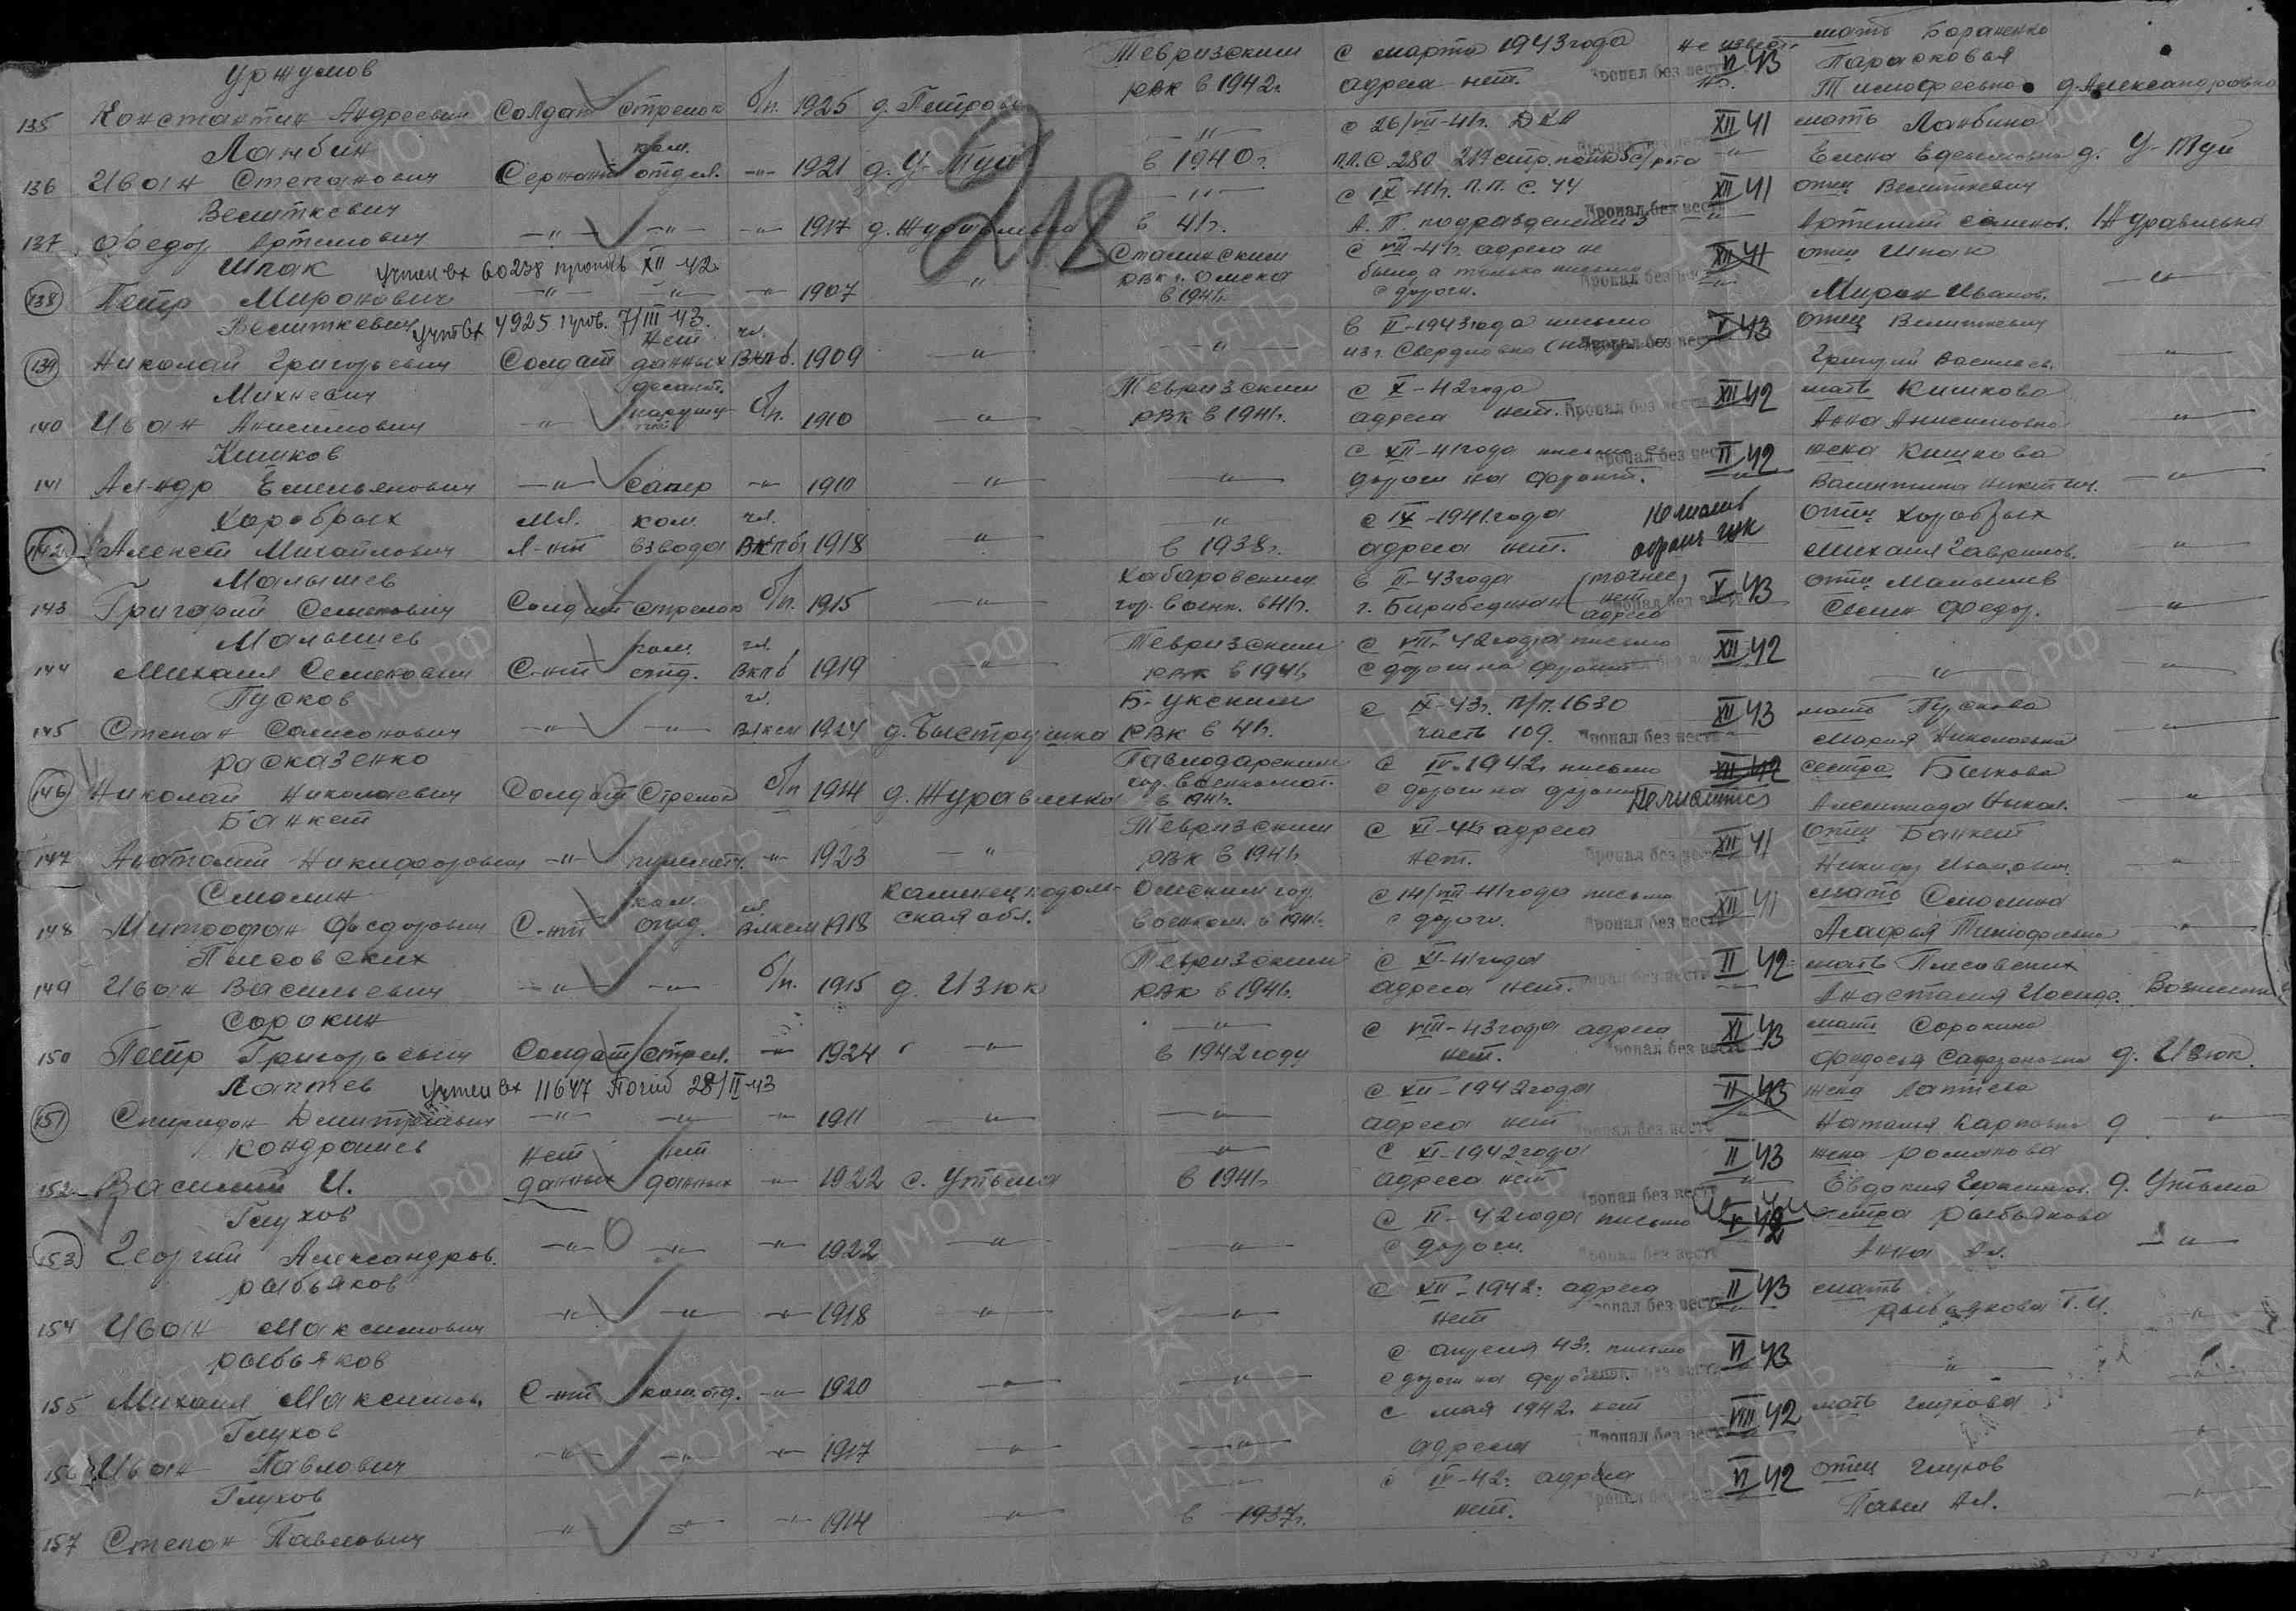 Уржумов
135 Константин Андреевич Солдат стрелок б/п. 1925 д. Петрово Тевризским РВК в 1942г. с марта 1943 года адреса нет. Пропал без вести VI 43 мать Бараненко Парасковья Тимофеевна д. Александровка
Ланбин
136 Иван Степанович Сержант ком. отдел. -"- 1921 д. У-Туй -"- в 1940г. с 26/VII-41г. ДКА п.п.с. 280 217 стр. полк XII 41 мать Ланбина Елена д. У-Туй
Велиткевич
137 Федор Артемович -"- -"- -"- 1917 д. Журавлевка -"- в 41г. с IX-41г. п.п.с. 44 А.П. подразделения 3 Пропал без вести XII 41 отец Велиткевич Артемий Журавлевка
Шпак учтен вх 60238 XII 42
138 Петр Миронович -"- -"- -"- 1907 -"- Сталинским РВК г. Омска в 1941г. с VII-41г. адреса не было, а только письмо с дороги. Пропал без вести XII 41 отец Шпак Мирон Иванов. -"-
Велиткевич учт вх 4925 7/III 43.
139 Николай Григорьевич Солдат нет данных чл. ВКПб. 1909 -"- -"- в II-1943 года письмо из г. Свердловка Пропал без вести V 43 отец Велиткевич Григорий Васильев. -"-
Михневич
140 Иван Анисимович -"- десант. б/п. 1910 -"- Тевризским РВК в 1941г. с X-42 года адреса нет. Пропал без вести XII 42 мать Кишкова Анна Анисимовна -"-
Кишков
141 Ал-ндр Емельянович -"- сапер -"- 1910 -"- -"- с XII-41 года письмо с дороги на фронт. Пропал без вести II 42 жена Кишкова Валентина Никитич. -"-
Хоробрых
142 Алексей Михайлович Мл. Л-нт ком. взвода чл. ВКПб 1918 -"- -"- в 1938г. с IX-1941 года адреса нет. отец Хоробрых Михаил Гаврилов. -"-
Малышев
143 Григорий Семенович Солдат стрелок б/п. 1915 -"- Хабаровским гор. военк. в 41г. в II-43 года г. Биробеджан (точнее нет адреса) Пропал без вести X 43 отец Малышев Семен Федор. -"-
Малышев
144 Михаил Семенович С-нт ком. отд. чл. Вкпб 1919 -"- Тевризским РВК в 1941г. с VII-42 года письмо с дороги на фронт XII 42 -"- -"-
Пусков
145 Степан Самсонович -"- -"- чл. Влксм 1924 д. Быструшка Б-Укским РВК в 41г. с IX-43г. п/п. 1630 часть 109. Пропал без вести XII 43 мать Пускова Мария Николаевна -"-
Расказенко
146 Николай Николаевич Солдат Стрелок б/п 1914 д. Журавлевка Павлодарским гор. военкомат. в 1941г. с IV-1942г. письмо с дороги на фронт XII 42 сестра Быкова Никол. -"-
Банкет
147 Анатолий Никифорович -"- пулеметч. -"- 1923 -"- Тевризским РВК в 1941г. с XI-41г адреса нет. Пропал без вести XII 41 отец Банкет Никифор Иванович. -"-
Смолин
148 Митрофан Федорович С-нт ком. отд. чл. Влксм 1918 Каминецподольская обл. Омским гор. военком. в 1941г. с 14/VIII-41 года письмо с дороги. Пропал без вести XII 41 мать Смолина Агафья Тимофеевна -"-
Писовских
149 Иван Васильевич -"- -"- б/п. 1915 д. Изюк Тевризским РВК в 1941г. с XI-41 года адреса нет. Пропал без вести II 42 мать Писовских Анастасия
Сорокин
150 Петр Григорьевич Солдат стрел. -"- 1924 -"- -"- в 1942 году с VIII-43 года адреса нет. Пропал без вести XI 43 мать Сорокина Федосья д. Изюк
Лаптев учтен вх 11647 Погиб 28/II-43
151 Спиридон Дмитриевич -"- -"- -"- 1911 -"- -"- с XII-1942 года адреса нет Пропал без вести II 43 жена Лаптева Наталья Карповна д. -"-
Кондрашев
152 Василий И. нет данных нет данных -"- 1922 с. Утьма -"- в 1941г. с XI-1942 года адреса нет Пропал без вести II 43 жена Романова Евдокия Герасимов. д. Утьма
Глухов
153 Георгий Александров. -"- -"- -"- 1922 -"- -"- с II-42 года письмо с дороги. Пропал без вести V 42 сестра Рыбьякова Анна Ал. -"-
Рыбьяков
154 Иван Максимович -"- -"- -"- 1918 -"- -"- с XII-1942г. адреса нет Пропал без вести II 43 мать Рыбьякова Т.И. -"-
Рыбьяков
155 Михаил Максимов. С-нт ком. отд. -"- 1920 -"- -"- с апреля 43г. письмо с дороги на фронт. Пропал без вести VI 43 -"- -"-
Глухов
156 Иван Павлович -"- -"- -"- 1917 -"- -"- с мая 1942г. нет адреса Пропал без вести VIII 42 мать Глухова -"-
Глухов
157 Степан Павлович -"- -"- -"- 1914 -"- в 1937г. с IV-42г. адреса нет. Пропал без вести VI 42 отец Глухов Павел Ал. -"-
218
ПАМЯТЬ НАРОДА
ЦАМО РФ